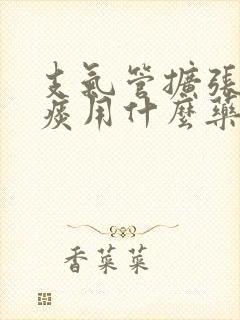 支氣管擴張
痰用什麼藥
香菜菜